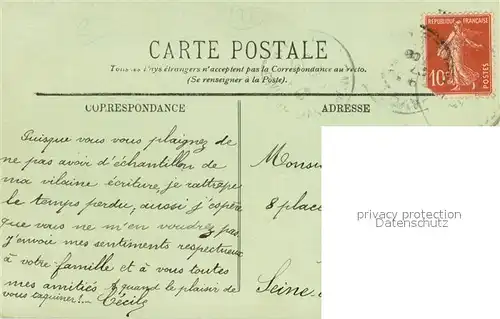 CARTE POSTALE
Tous les Pays étrangers n'acceptent pas la Correspondance au recto.
(Se renseigner à la Poste).
RÉPUBLIQUE FRANÇAISE
10c
POSTES
CORRESPONDANCE
ADRESSE
Puisque vous vous plaignez de
ne pas avoir d'échantillon de
ma vilaine écriture, je rattrape
le temps perdu, aussi j'espère
que vous ne m'en voudrez pas
J'envoie mes sentiments respectueux
à votre famille et à vous toutes
mes amitiés. quand le plaisir de
vous taquiner!.. Cécile
Monsi
8 place
Seine
privacy protection
Datenschutz